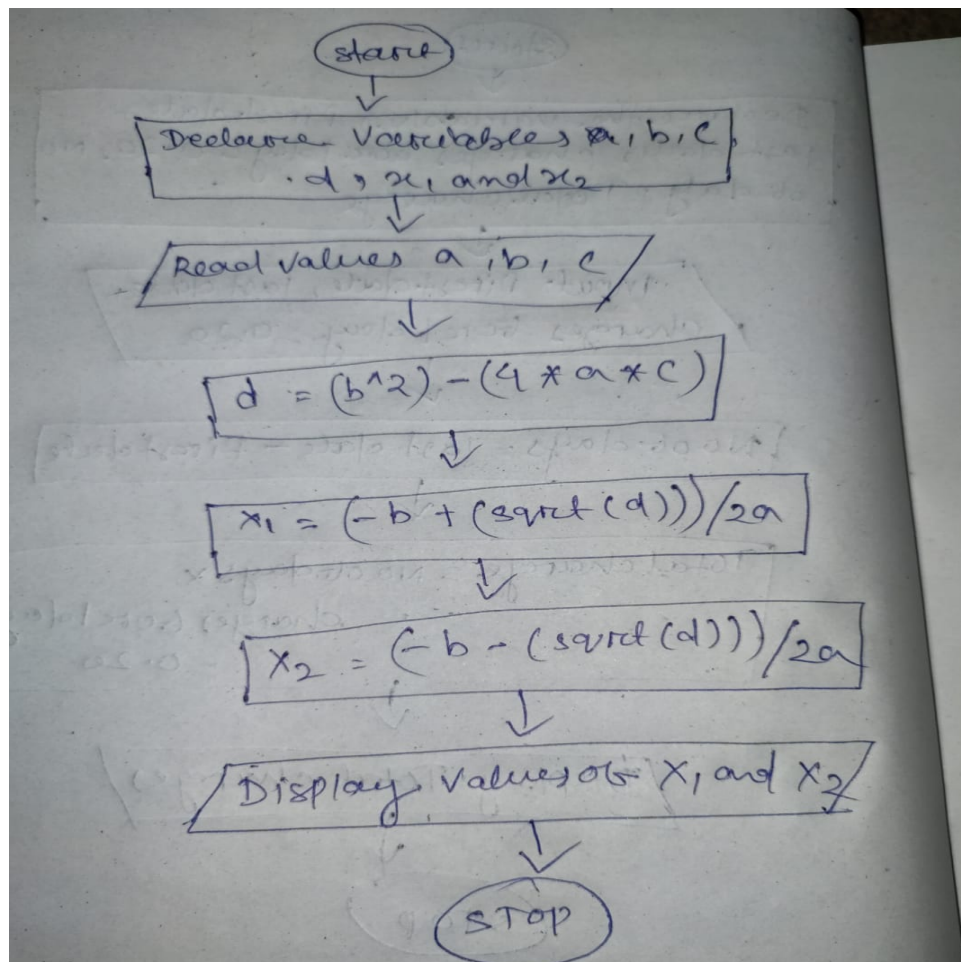 start
Declare Variables a, b, c
d, x₁ and x₂
Read values a, b, c
d = (b^2) - (4 * a * c)
x₁ = (-b + (sqrt(d)))/2a
x₂ = (-b - (sqrt(d)))/2a
Display values of x₁ and x₂
STOP